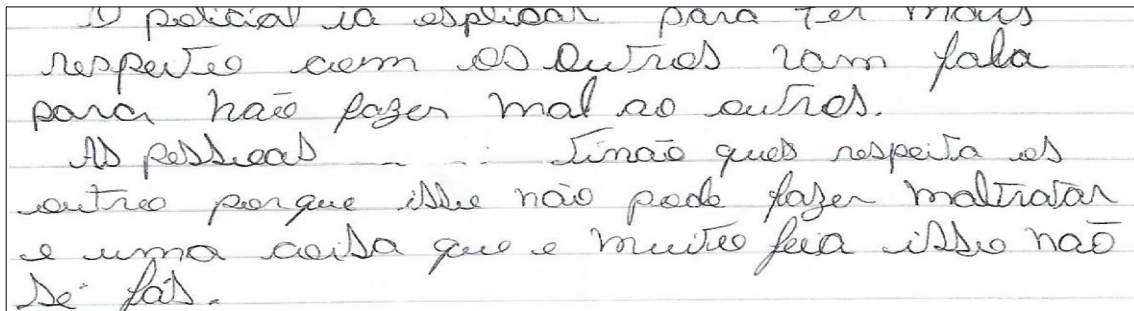 O policial ia esplicar para ter mais
respeito com os outros iam fala
para não fazer mal ao outros.
As pessoas tinão ques respeita os
outro porque isso não pode fazer maltratar
e uma coisa que e muito feia isso não
se fás.